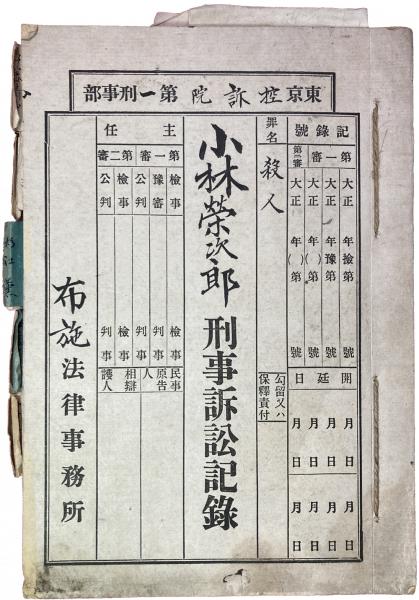 東京控訴院第一刑事部
記錄號
第一審
大正 年檢第 號
大正 年豫第 號
大正 年( )第 號
第二審
大正 年( )第 號
開廷日
月 日 月 日
月 日 月 日
月 日 月 日
月 日 月 日
罪名
殺人
勾留又ハ
保釋責付
小林榮次郎 刑事訴訟記錄
主任
第一審
檢事 檢事
豫審 判事
公判 判事
第二審
檢事 檢事
公判 判事
民事
原告
人
相辯
護人
布施法律事務所